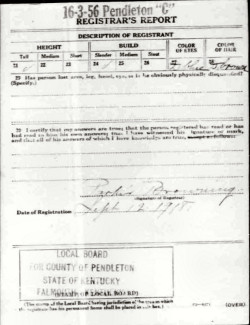 16-3-56 Pendleton "C"
REGISTRAR'S REPORT
DESCRIPTION OF REGISTRANT
HEIGHT BUILD COLOR OF EYES COLOR OF HAIR
Tall Medium Short Slender Medium Stout
21 22 23 24 25 26 27 28
Blue Brown
29 Has person lost arm, leg, hand, eye, or is he obviously physically disqualified?
(Specify.)
30 I certify that my answers are true; that the person registered has read or has
had read to him his own answers; that I have witnessed his signature or mark,
and that all of his answers of which I have knowledge are true,
Browning
(Signature of Registrar)
Date of Registration Sept 12 1918
LOCAL BOARD
FOR COUNTY OF PENDLETON
STATE OF KENTUCKY
(STAMP OF LOCAL BOARD)
(The stamp of the Local Board having jurisdiction of the area in which
the registrant has his permanent home shall be placed in this box.)
(OVER)